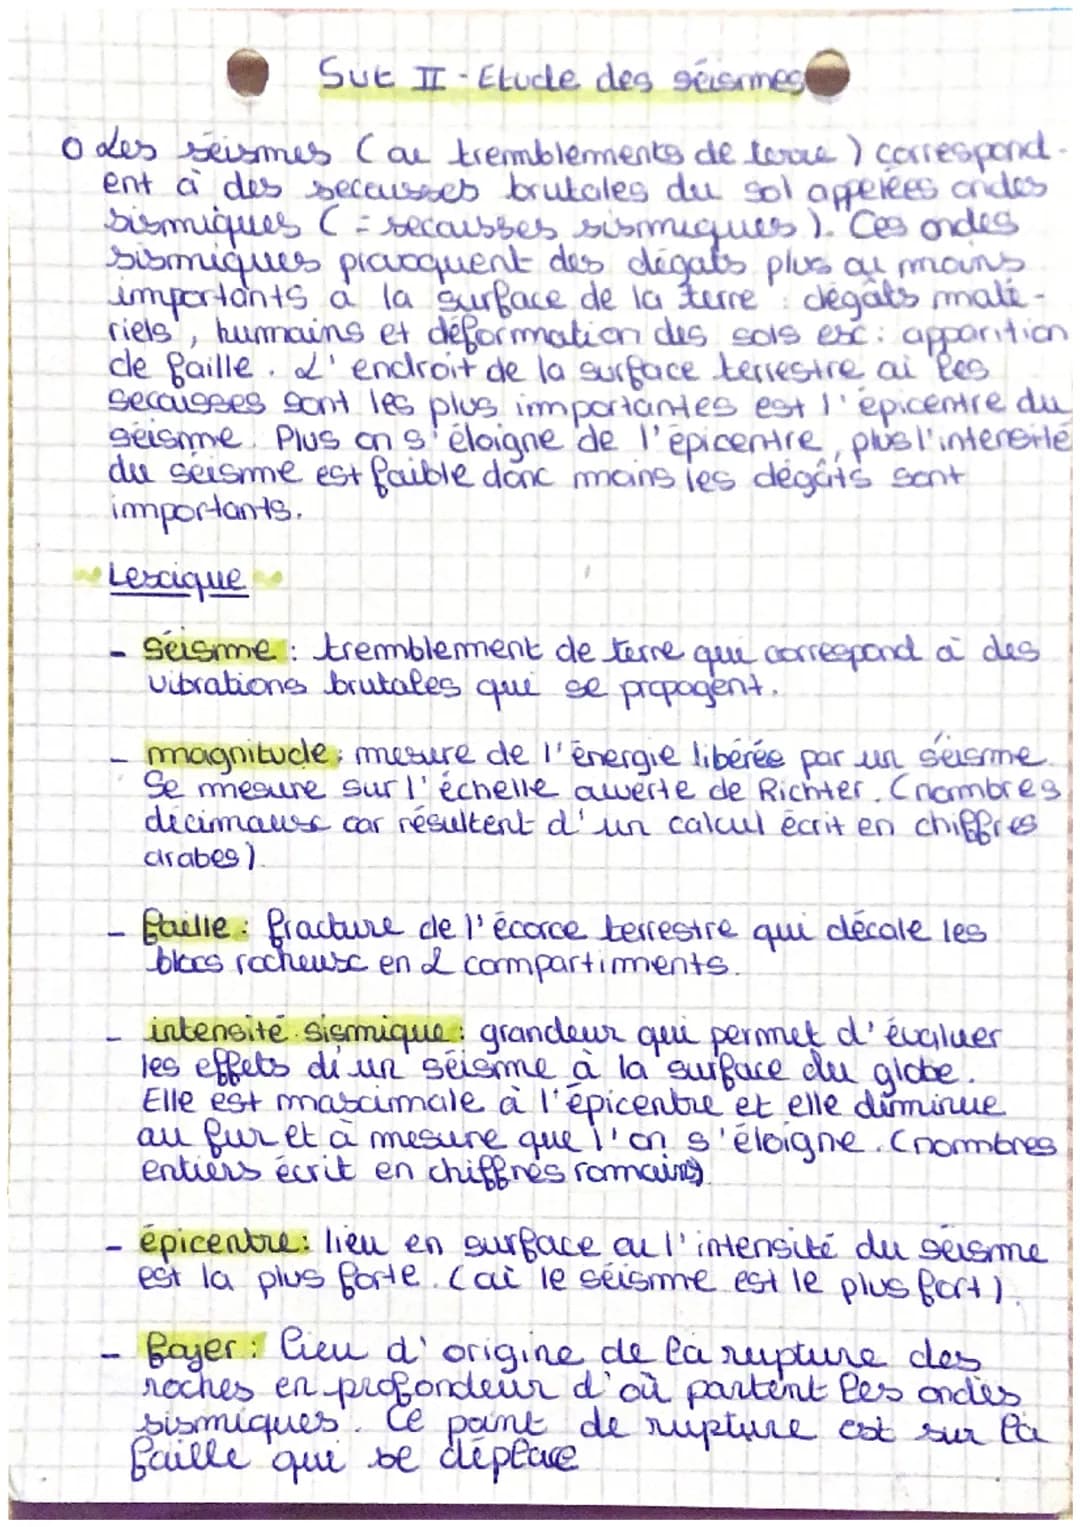 Svt II - Etude des séismes
o Les séismes (ou tremblements de terre) correspond-
ent à des secousses brutales du sol appelées ondes
sismiques (= secousses sismiques). Ces ondes
sismiques provoquent des dégats plus ou moins
importants à la surface de la terre : dégâts maté-
riels, humains et déformation des sols ex : apparition
de faille. L'endroit de la surface terrestre où les
secousses sont les plus importantes est l'épicentre du
séisme. Plus on s'éloigne de l'épicentre, plus l'intensité
du séisme est faible donc moins les dégâts sont
importants.
Lexique
- séisme : tremblement de terre qui correspond à des
vibrations brutales qui se propagent.
- magnitude : mesure de l'énergie libérée par un séisme.
Se mesure sur l'échelle ouverte de Richter. (nombres
décimaux car résultent d'un calcul écrit en chiffres
arabes)
- faille : fracture de l'écorce terrestre qui décale les
blocs rocheux en 2 compartiments.
- intensité sismique : grandeur qui permet d'évaluer
les effets d'un séisme à la surface du globe.
Elle est maximale à l'épicentre et elle diminue
au fur et à mesure que l'on s'éloigne. (nombres
entiers écrit en chiffres romains)
- épicentre : lieu en surface ou l'intensité du séisme
est la plus forte. (où le séisme est le plus fort).
- foyer : lieu d'origine de la rupture des
roches en profondeur d'où partent les ondes
sismiques. Ce point de rupture est sur la
faille qui se déplace